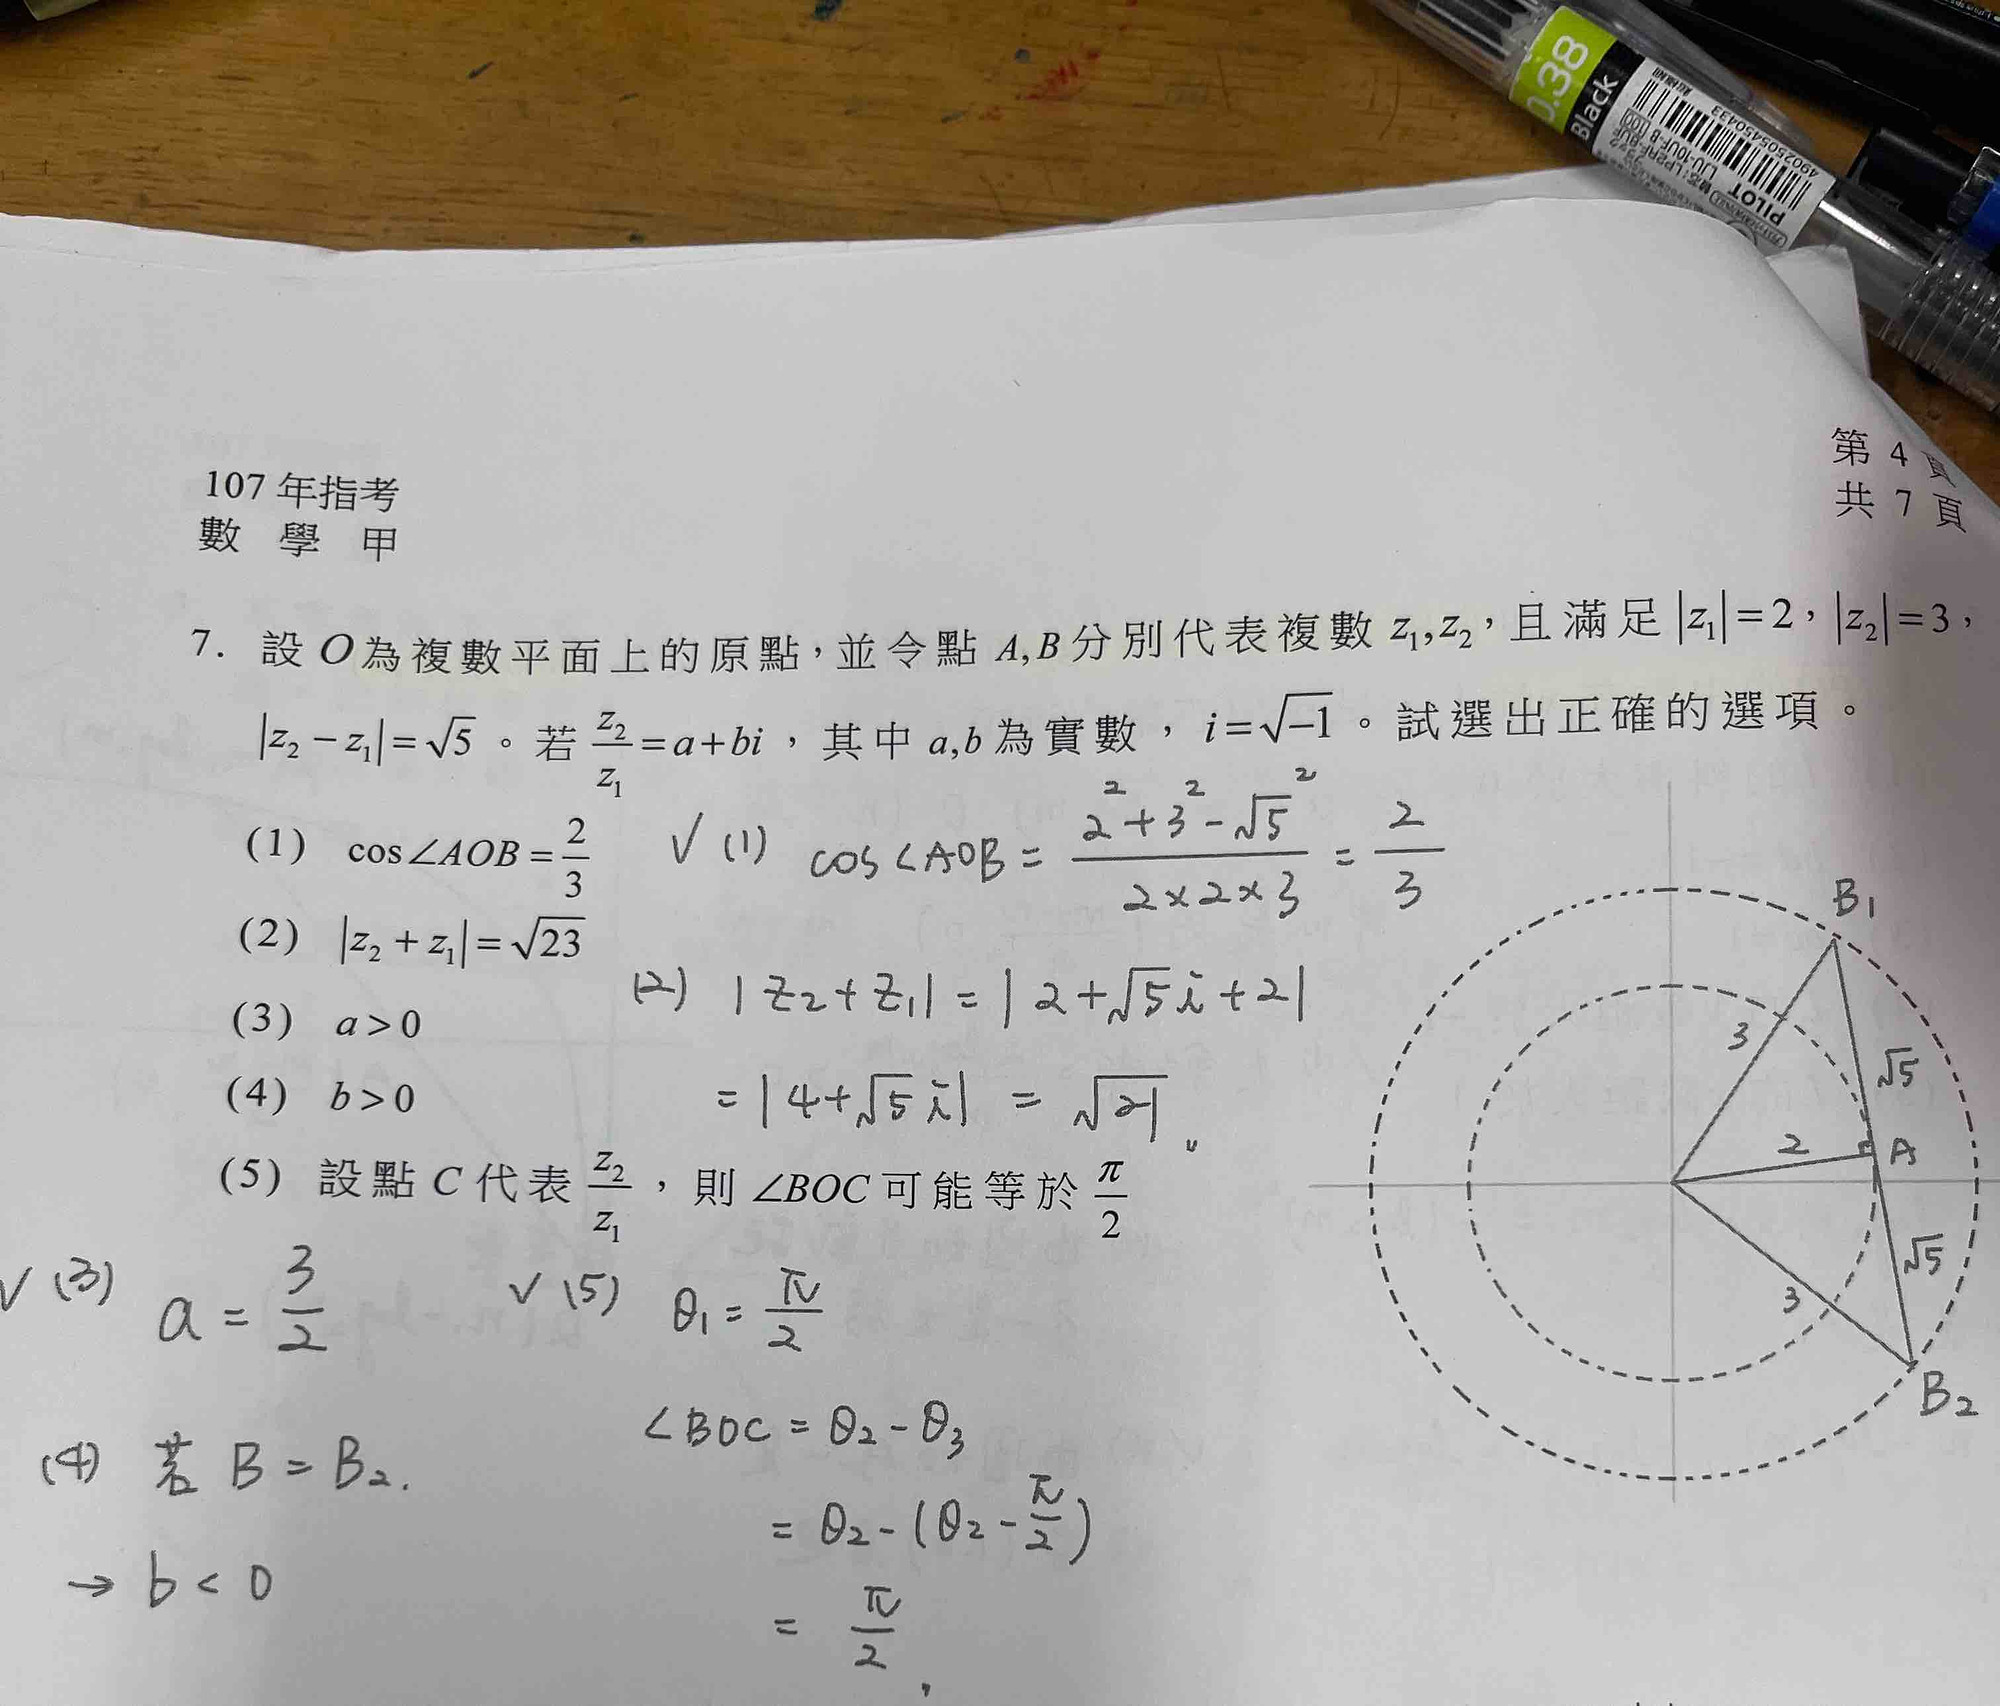 0.38
Black
PILOT
LJU-10UF-B
4902505450433
107 年指考
數 學 甲
第 4 頁
共 7 頁
7. 設 O 為複數平面上的原點，並令點 A,B 分別代表複數 z₁,z₂，且滿足 |z₁|=2，|z₂|=3，
|z₂-z₁|=√5。若 z₂/z₁=a+bi，其中 a,b 為實數，i=√-1。試選出正確的選項。
(1) cos∠AOB=2/3
(2) |z₂+z₁|=√23
(3) a>0
(4) b>0
(5) 設點 C 代表 z₂/z₁，則 ∠BOC 可能等於 π/2
✓ (1) cos∠AOB = (2²+3²-√5²)/(2×2×3) = 2/3
(2) |z₂+z₁| = |2+√5i+2|
= |4+√5i| = √21
✓ (3) a = 3/2
(4) 若 B = B₂.
→ b < 0
✓ (5) θ₁ = π/2
∠BOC = θ₂-θ₃
= θ₂-(θ₂-π/2)
= π/2
B₁
3
√5
2
A
√5
3
B₂